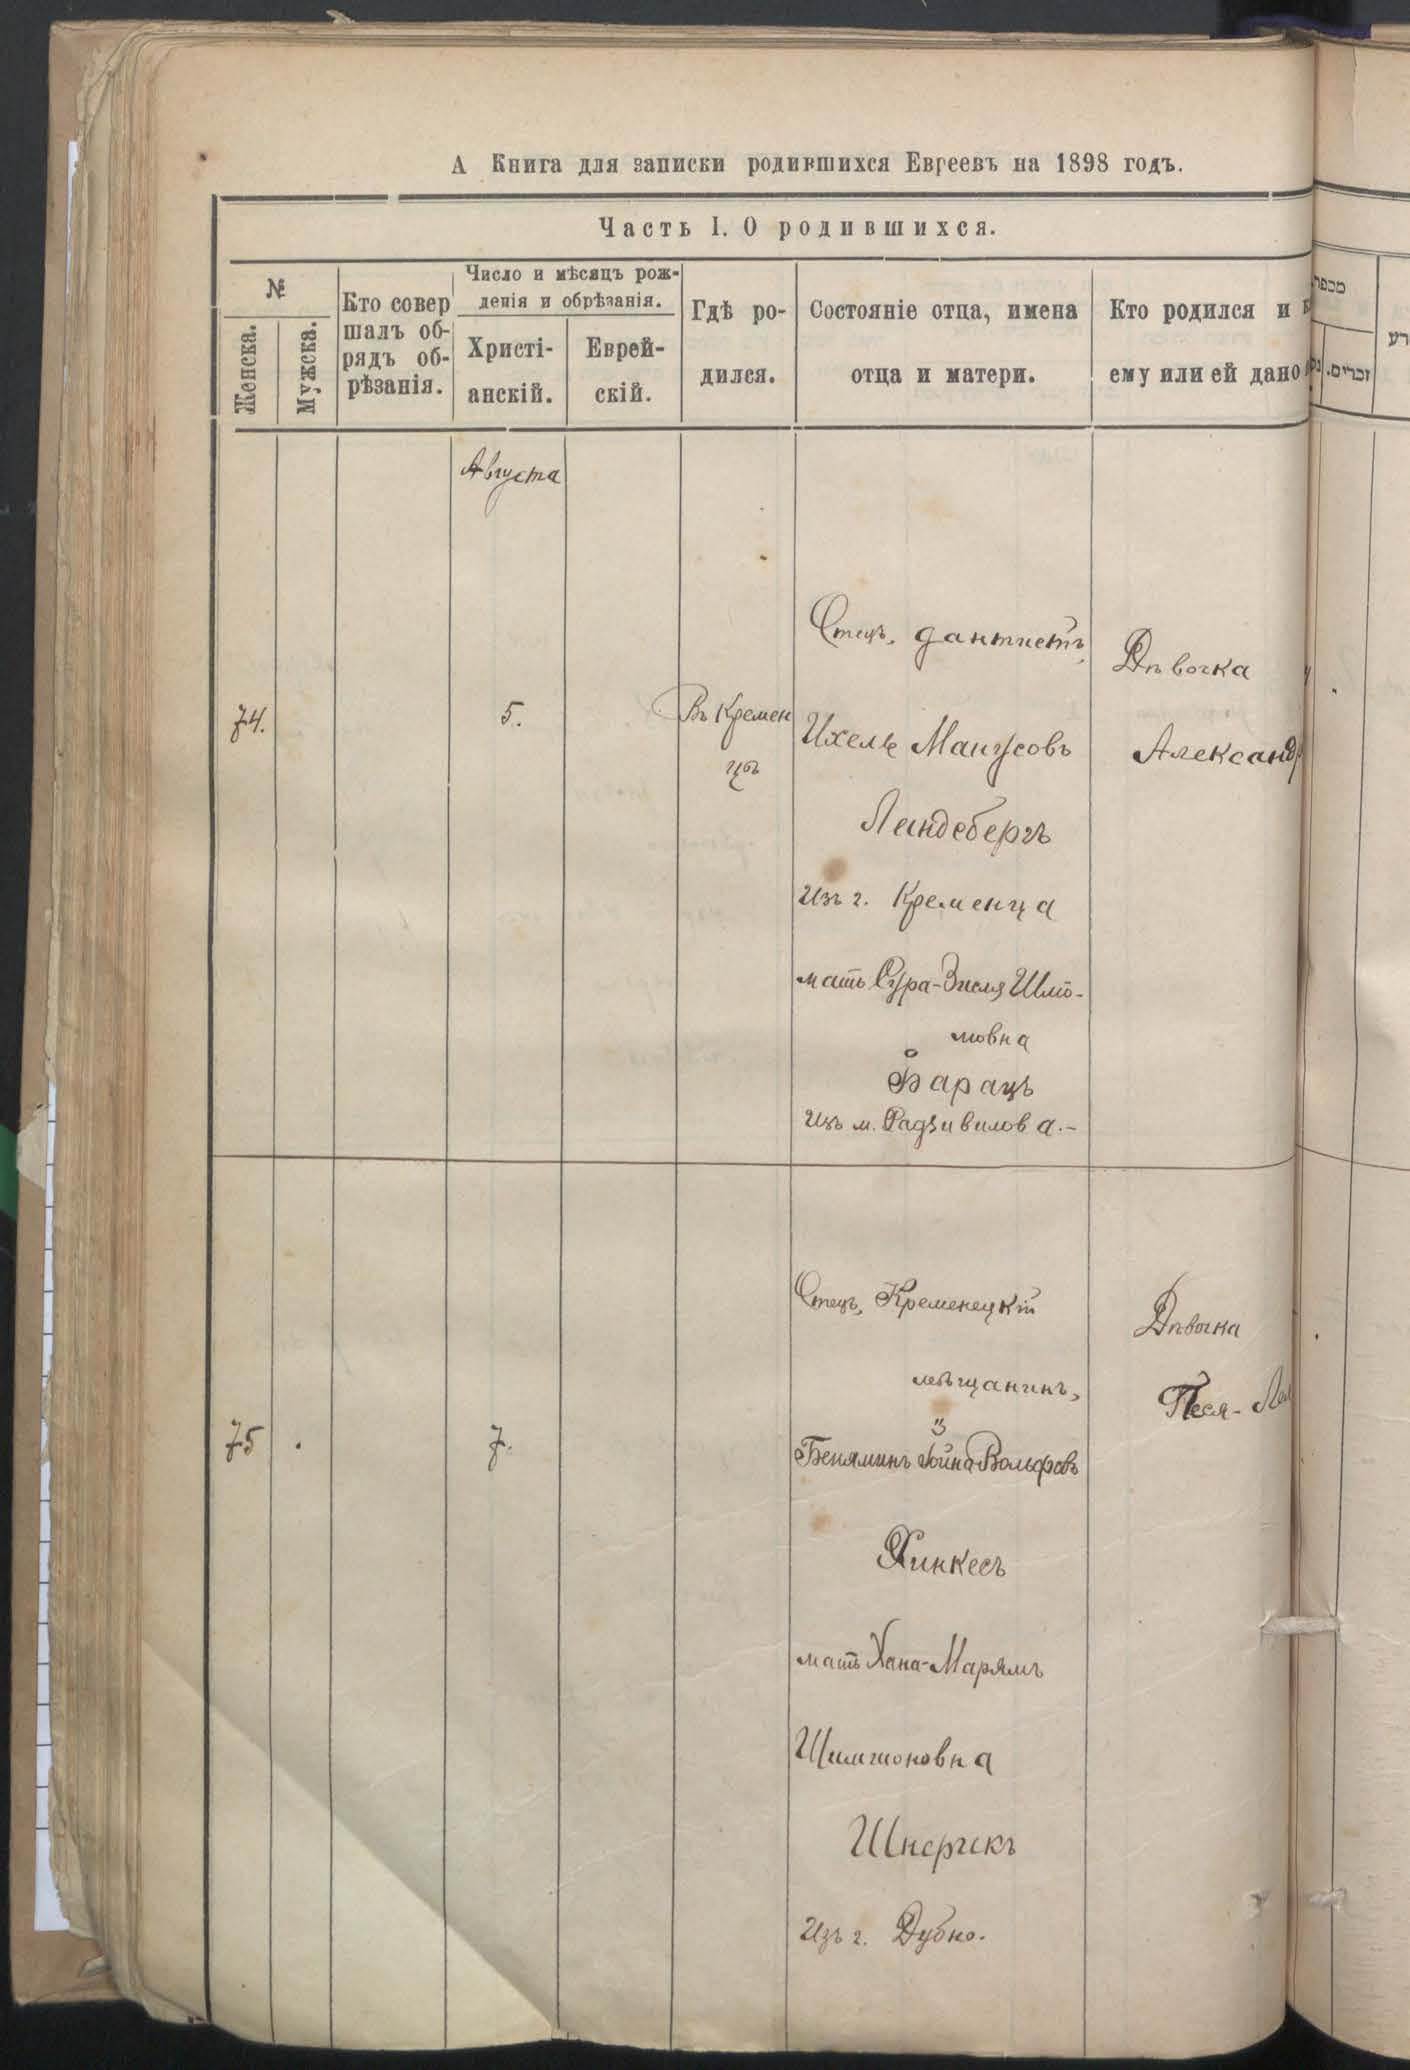 А Книга для записки родившихся Евреевъ на 1898 годъ.
Часть I. О родившихся.
№
Женска.
Мужска.
Кто совер
шалъ об-
рядъ об-
рѣзанія.
Число и мѣсяцъ рож-
денія и обрѣзанія.
Христі-
анскій.
Еврей-
скій.
Гдѣ ро-
дился.
Состояніе отца, имена
отца и матери.
Кто родился и
ему или ей дано
זכרים.
Августа
74.
5.
Въ Кремен
цѣ
Отецъ, дантистъ,
Ихель Манусовъ
Ландсбергъ
Изъ г. Кременца
мать Сура-Зисля Шлio-
мовна
Барацъ
Изъ м. Радзивилова.-
Дѣвочка
Александ
75
7.
Отецъ, Кременецкій
мѣщанинъ,
Беняминъ Вольфовъ
Хинкесъ
мать Хана-Марямъ
Шимшоновна
Шнерикъ
Изъ г. Дубно.
Дѣвочка
Песя-